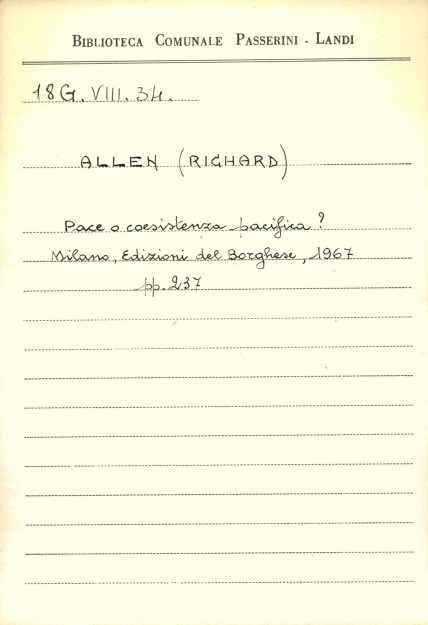 BIBLIOTECA COMUNALE PASSERINI - LANDI
18G. VIII. 34.
ALLEN (RICHARD)
Pace o coesistenza pacifica?
Milano, Edizioni del Borghese, 1967
pp. 237